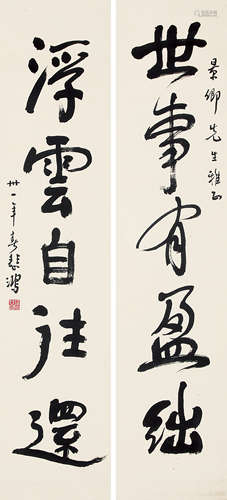 景卿先生雅正
世事有盈绌
浮雲自往還
卅一年春悲鴻